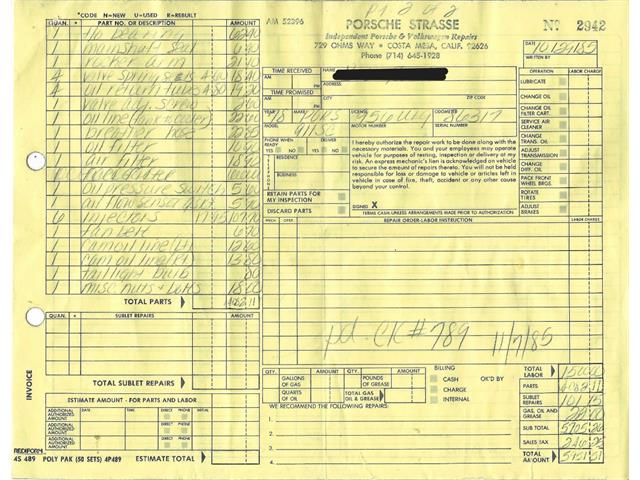 P1 2 of 2
*CODE N=NEW U=USED R=REBUILT
AM 52396
PORSCHE STRASSE
Nº 2942
QUAN. * PART NO. OR DESCRIPTION AMOUNT
Independent Porsche & Volkswagen Repairs
729 OHMS WAY • COSTA MESA, CALIF. 92626
Phone (714) 645-1928
DATE 10/29/85
WRITTEN BY
1 mainshaft seal
1 rocker arm
4 valve spring
4 oil return tubes 4.80 19.20
valve adj. screw
oil line
1 breather hose
1 oil filter
1 air filter
1 oil pressure switch
1 air flow sensor
6 injectors
1 fan belt
1 cam oil line (lt)
1 cam oil line (rt)
1 taillight bulb 80
1 misc nuts + bolts
TOTAL PARTS 4082.11
QUAN. * SUBLET REPAIRS AMOUNT
TOTAL SUBLET REPAIRS
ESTIMATE AMOUNT - FOR PARTS AND LABOR
ADDITIONAL AUTHORIZED AMOUNT DATE TIME DIRECT PHONE BY AMOUNT
ADDITIONAL AUTHORIZED AMOUNT DIRECT PHONE
ADDITIONAL AUTHORIZED AMOUNT DIRECT PHONE
REDIFORM
4S 489 POLY PAK (50 SETS) 4P489 ESTIMATE TOTAL
INVOICE
TIME RECEIVED
AM
PM
TIME PROMISED
AM
PM
ZIP CODE
YEAR MAKE LICENSE ODOMETER
78 PORS 956 86317
MODEL MOTOR NUMBER SERIAL NUMBER
911SC
PHONE WHEN READY DELIVER
YES NO YES NO
RESIDENCE
BUSINESS
RETAIN PARTS FOR MY INSPECTION
DISCARD PARTS
I hereby authorize the repair work to be done along with the
necessary materials. You and your employees may operate
vehicle for purposes of testing, inspection or delivery at my
risk. An express mechanic's lien is acknowledged on vehicle
to secure the amount of repairs thereto. You will not be held
responsible for loss or damage to vehicle or articles left in
vehicle in case of fire, theft, accident or any other cause
beyond your control.
SIGNED X
TERMS CASH UNLESS ARRANGEMENTS MADE PRIOR TO AUTHORIZATION
MECH OPER REPAIR ORDER-LABOR INSTRUCTION LABOR CHARGE
pd. CK#789 11/7/85
OPERATION LABOR CHARGE
LUBRICATE
CHANGE OIL
CHANGE OIL FILTER CART.
SERVICE AIR CLEANER
CHANGE TRANS. OIL
ADJUST TRANSMISSION
CHANGE DIFF. OIL
PACK FRONT WHEEL BRGS.
ROTATE TIRES
ADJUST BRAKES
QTY. GALLONS OF GAS
QUARTS OF OIL
QTY. POUNDS OF GREASE
TOTAL GAS OIL & GREASE
BILLING
CASH
CHARGE
INTERNAL
OK'D BY
WE RECOMMEND THE FOLLOWING REPAIRS:
1.
2.
3.
4.
TOTAL LABOR 1500.00
PARTS 4082.11
SUBLET REPAIRS 101.15
GAS, OIL AND GREASE
SUB TOTAL
SALES TAX
TOTAL AMOUNT 5951.51